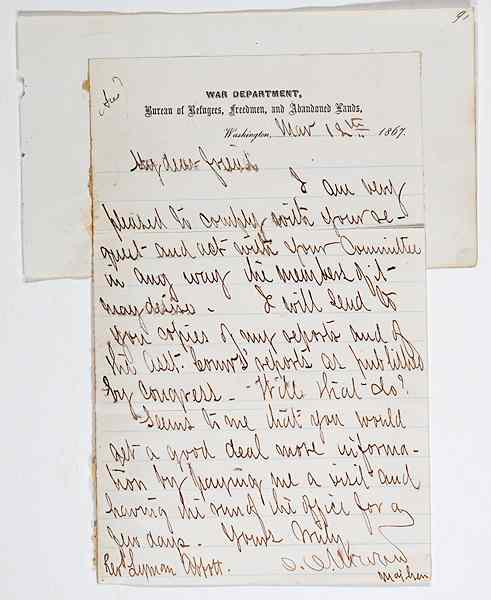 9
WAR DEPARTMENT,
Bureau of Refugees, Freedmen, and Abandoned Lands,
Washington, Mar 12th 1867.
My dear friend
I am very
pleased to comply with your re-
quest and act with your Committee
in any way the members of it
may desire. I will send to
you copies of my reports and of
the Asst. Comrs' reports as published
by Congress - Will that do?
Seems to me that you would
get a good deal more informa-
tion by paying me a visit and
having the run of the office for a
few days. Yours truly,
O. O. Howard
Maj. Gen
Rev. Lyman Abbott.